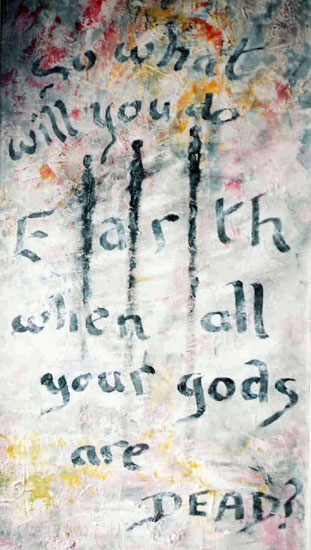 So what
will you do
Earth
when all
your gods
are
DEAD?